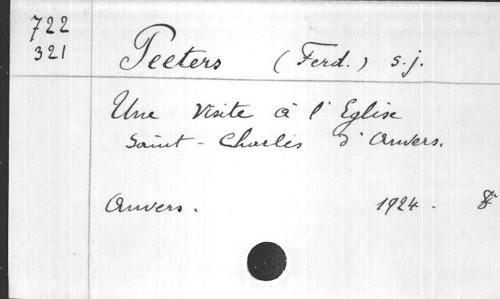 722
321
Peeters (Ferd.) s.j.
Une Visite à l'Eglise
Saint-Charles d'Anvers.
Anvers. 1924.